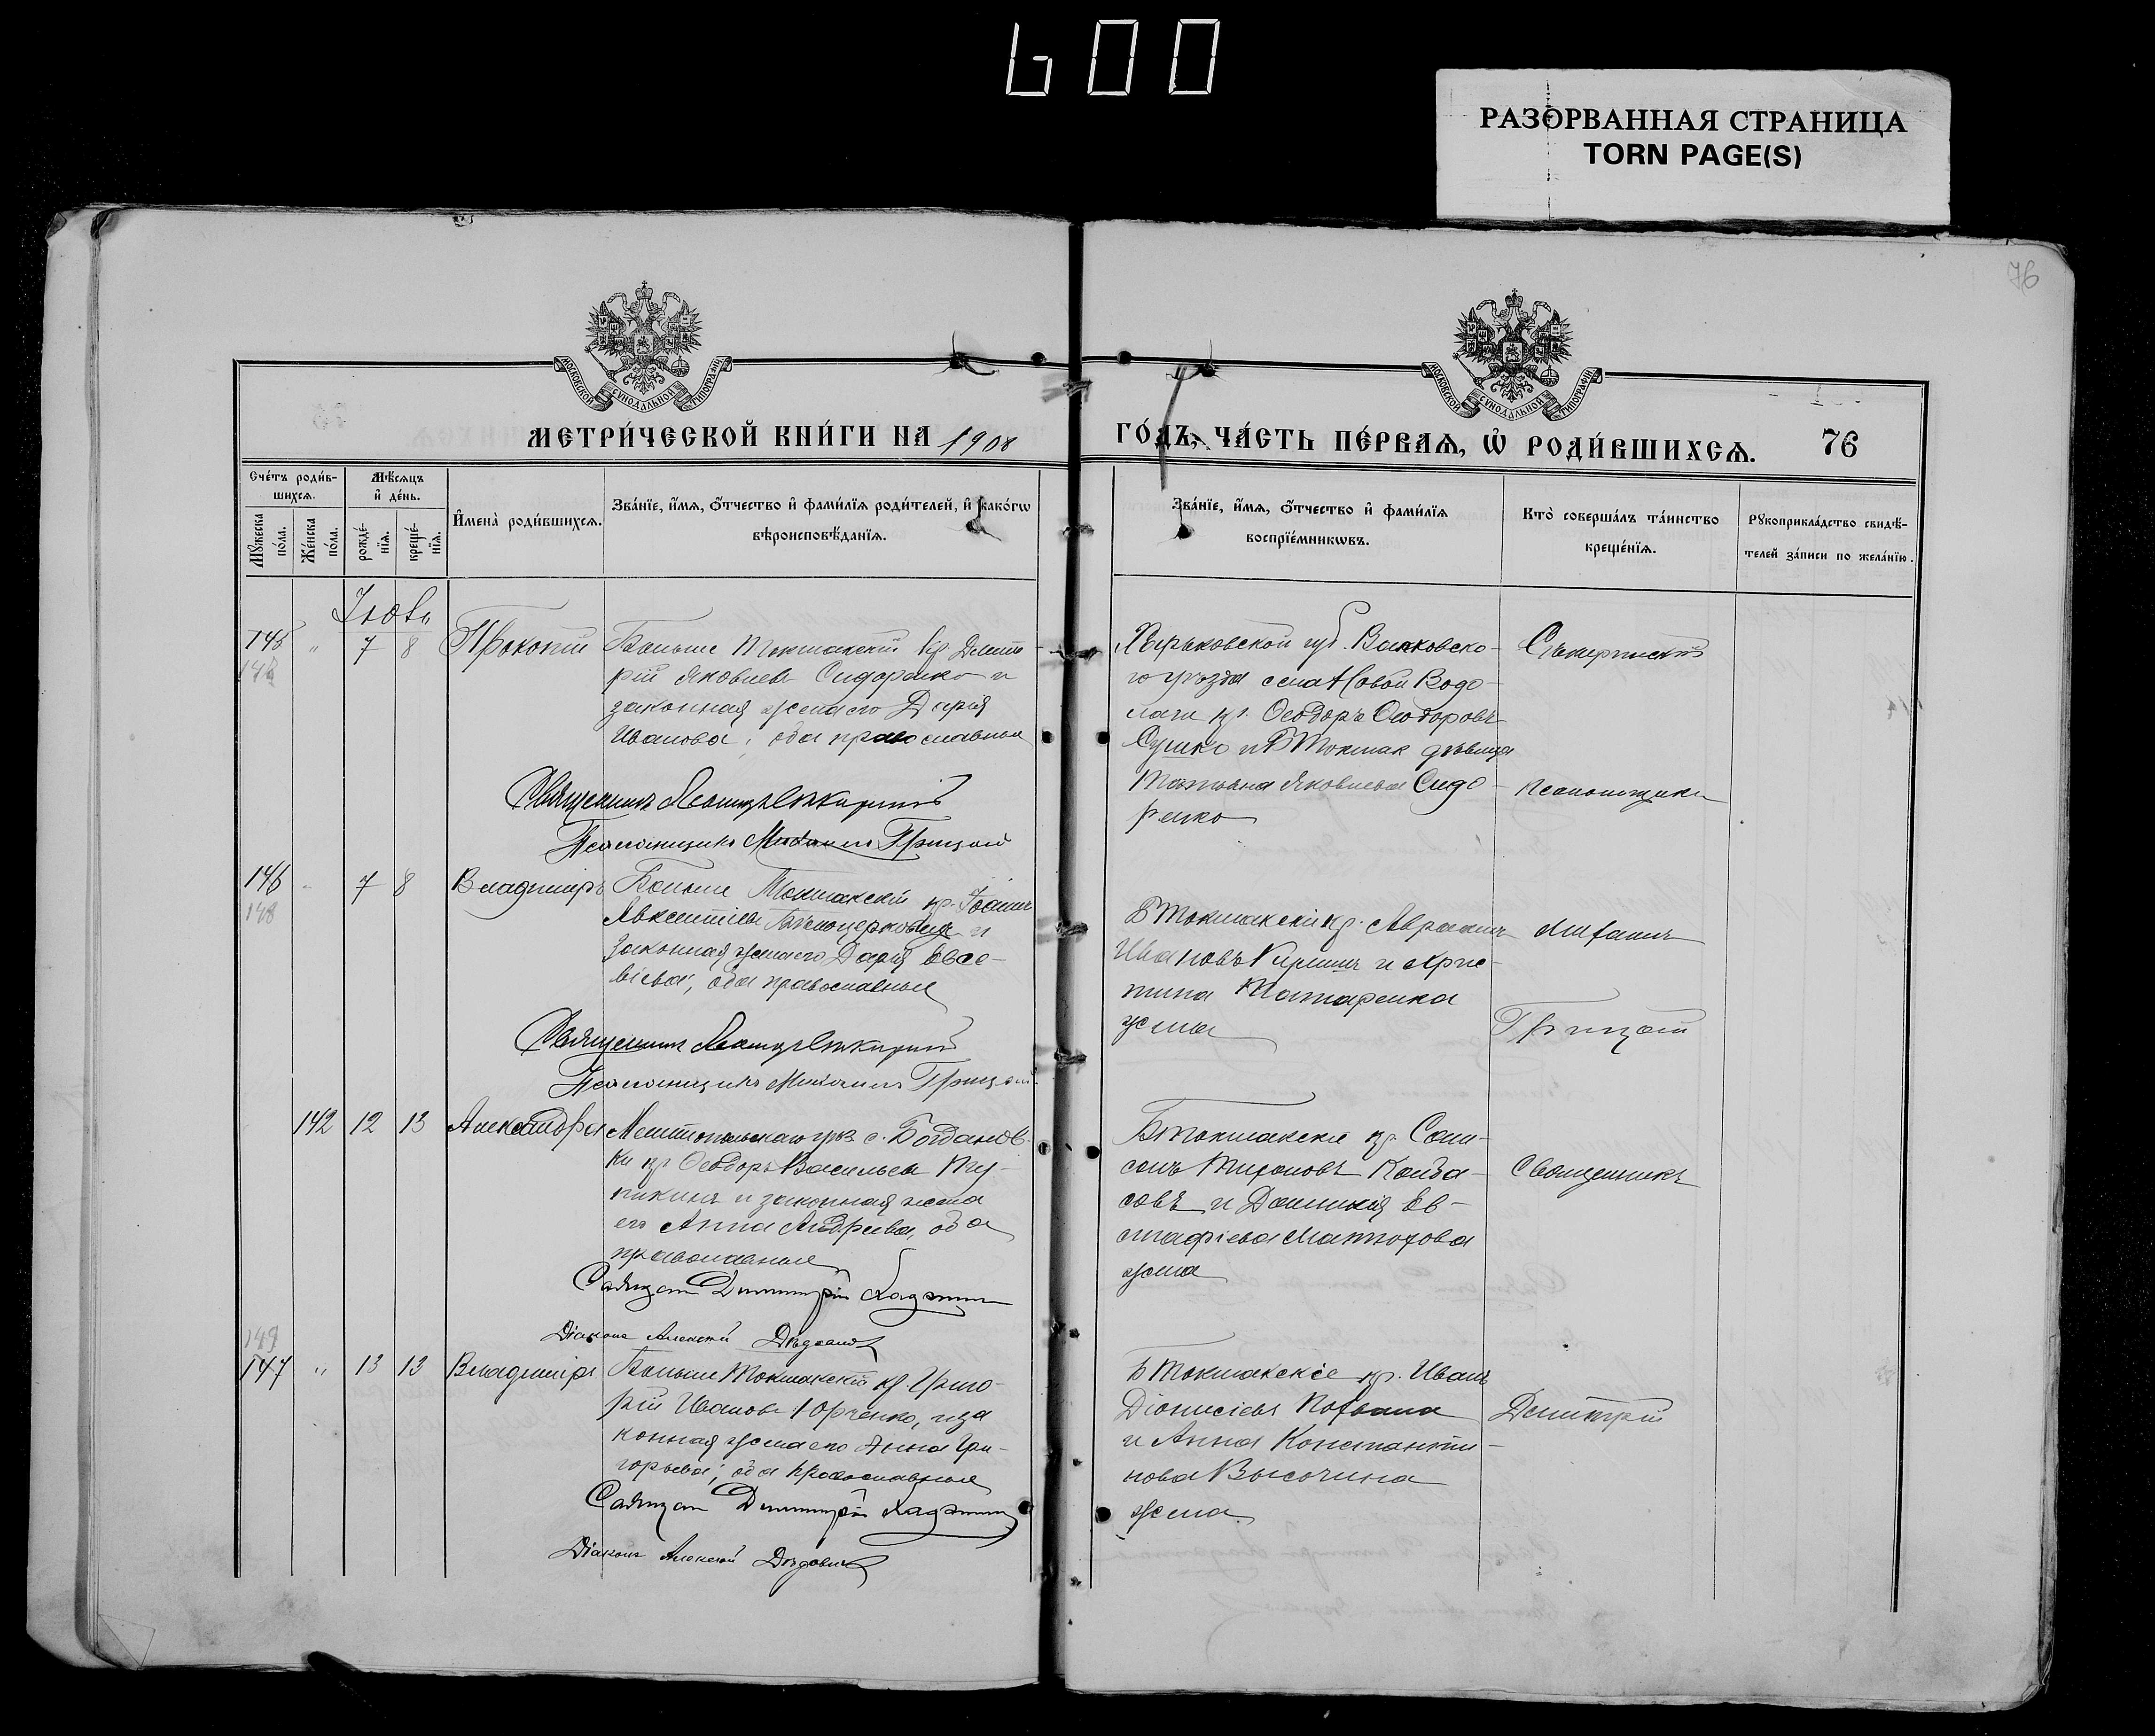 600
РАЗОРВАННАЯ СТРАНИЦА
TORN PAGE(S)
76
МОСКОВСКОЙ СѴНОДАЛЬНОЙ ТИПОГРАФІИ
МОСКОВСКОЙ СѴНОДАЛЬНОЙ ТИПОГРАФІИ
МЕТРИ́ЧЕСКОЙ КНИ́ГИ НА 1908
ГО́ДЪ, ЧА́СТЬ ПЕ́РВАѦ, Ѡ҆ РОДИ́ВШИХСѦ. 76
Сче́тъ роди́в-
шихсѧ.
Мꙋ́жеска
по́ла.
Же́нска
по́ла.
Мѣ́сѧцъ
и҆ де́нь.
рожде́-
нїѧ.
креще́-
нїѧ.
И҆мена̀ роди́вшихсѧ.
Зва́нїе, и҆́мѧ, ѻ҆́тчество и҆ фами́лїѧ роди́телей, и҆ како́гѡ
вѣроисповѣ́данїѧ.
Зва́нїе, и҆́мѧ, ѻ҆́тчество и҆ фами́лїѧ
воспрїе́мникѡвъ.
Кто̀ соверша́лъ та́инство
креще́нїѧ.
Рꙋкоприкла́дство свидѣ́-
телей за́писи по жела́нїю.
Іюль
145 " 7 8 Прокопій
Больше Токмакскій кр. Дмит-
рій Яковлевъ Сидоренко и
законная жена его Дарія
Иванова; оба православные
Харьковской губ. Валковско-
го уѣзда села Новой Водо-
лаги кр. Ѳеодоръ Ѳеодоровъ
Сушко и Б Токмак дѣвица
Татіана Яковлева Сидо-
ренко
Священникъ
Псаломщикъ Михаилъ Грицай
псаломщикъ
146 7 8 Владиміръ
148
Больше Токмакскій кр. Іоаннъ
Авксентіевъ и
законная жена его Дарія Евсе-
віева; оба православные
Б Токмакскій кр. Авраамъ
Ивановъ и Хрис-
тина Татаренка
жена
Михаилъ
Грицай
Священникъ
Псаломщикъ Михаилъ Грицай
142 12 13 Александра
Мелитопольскаго уѣз с. Богданов-
ки кр Ѳеодоръ Васильевъ
и законная жена
его Анна Андреева, оба
православные
БТокмакскіе кр. Сам-
сонъ
и Домникія Ев-
стафіева Матюхова
жена
Священникъ
Священ Димитрій
Діаконъ Алексѣй
149
147 " 13 13 Владиміръ
Больше Токмакскій кр. Григо-
рій Ивановъ Юрченко, и за
конная жена его Анна Гри-
горьева; оба православные
Б Токмакскіе кр. Иванъ
Діонисіевъ
и Анна Константи-
нова Высочина
жена
Димитрій
Священ Димитрій
Діаконъ Алексѣй